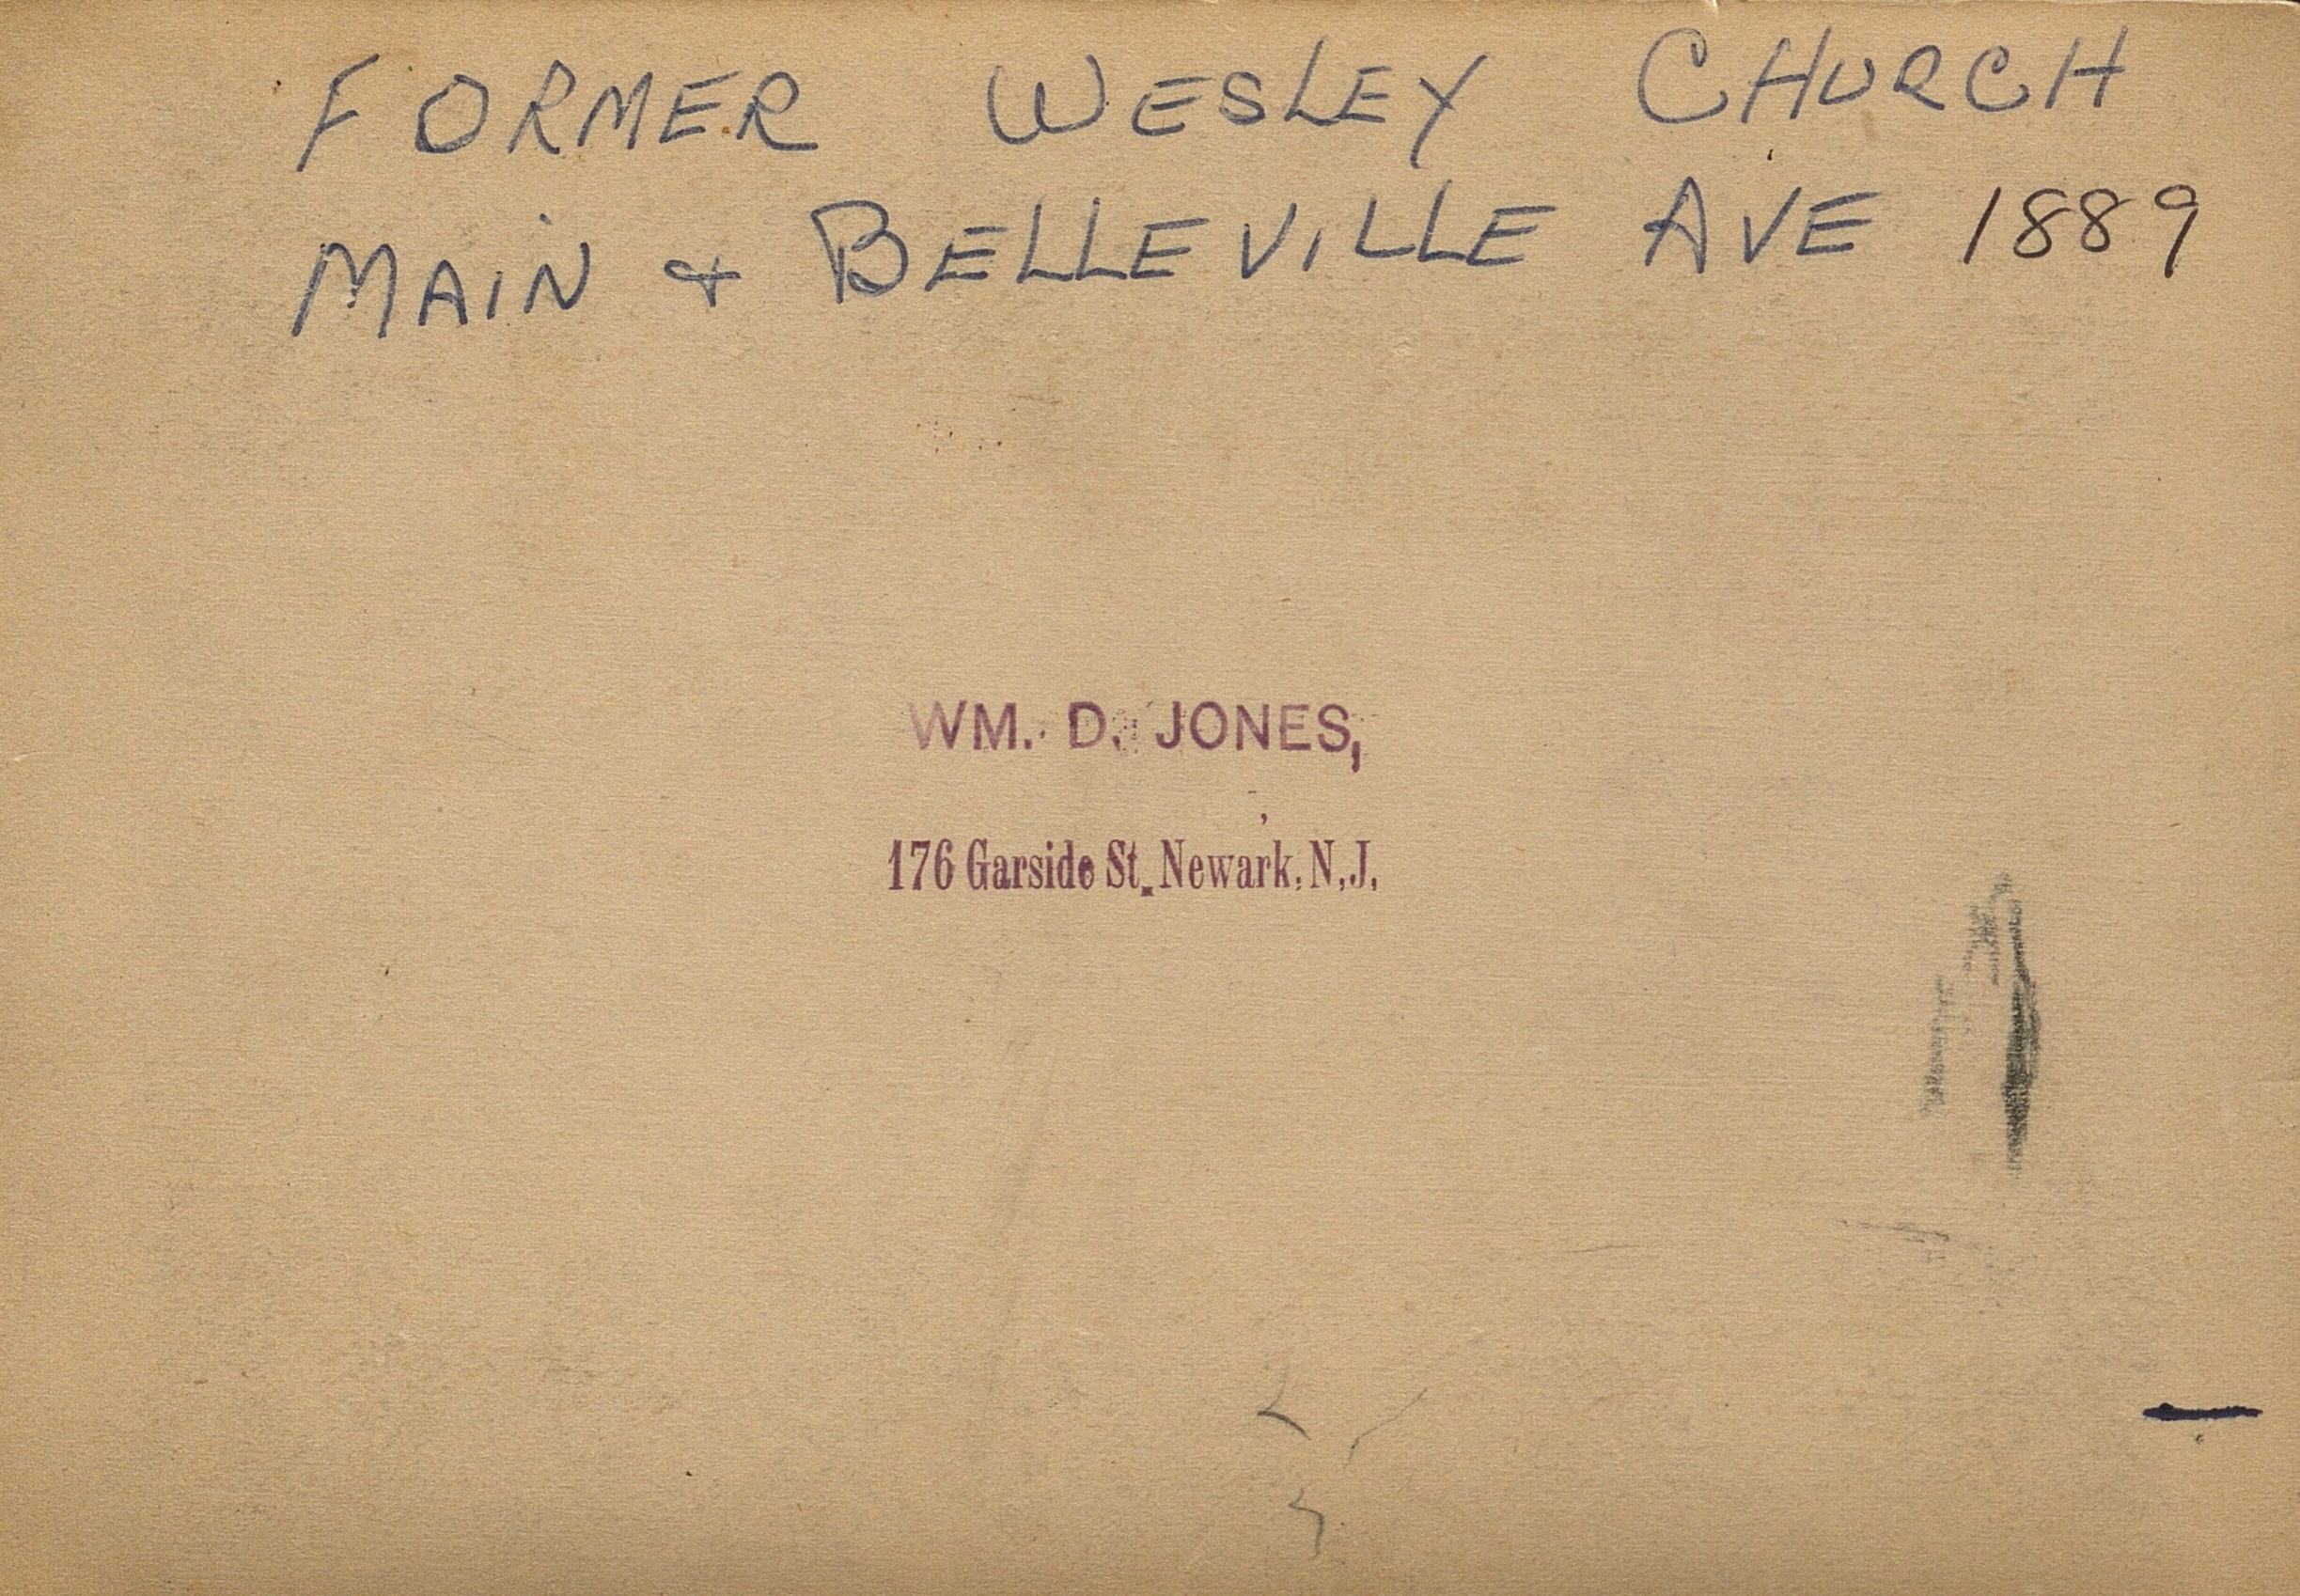 FORMER WESLEY CHURCH
MAIN & BELLEVILLE AVE 1889
WM. D. JONES,
176 Garside St. Newark, N.J.